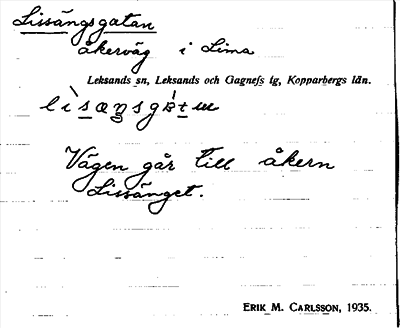 Lissängsgatan
åkerväg i Lima
Leksands sn, Leksands och Gagnefs tg, Kopparbergs län.
Vägen går till åkern
Lissänget.
ERIK M. CARLSSON, 1935.